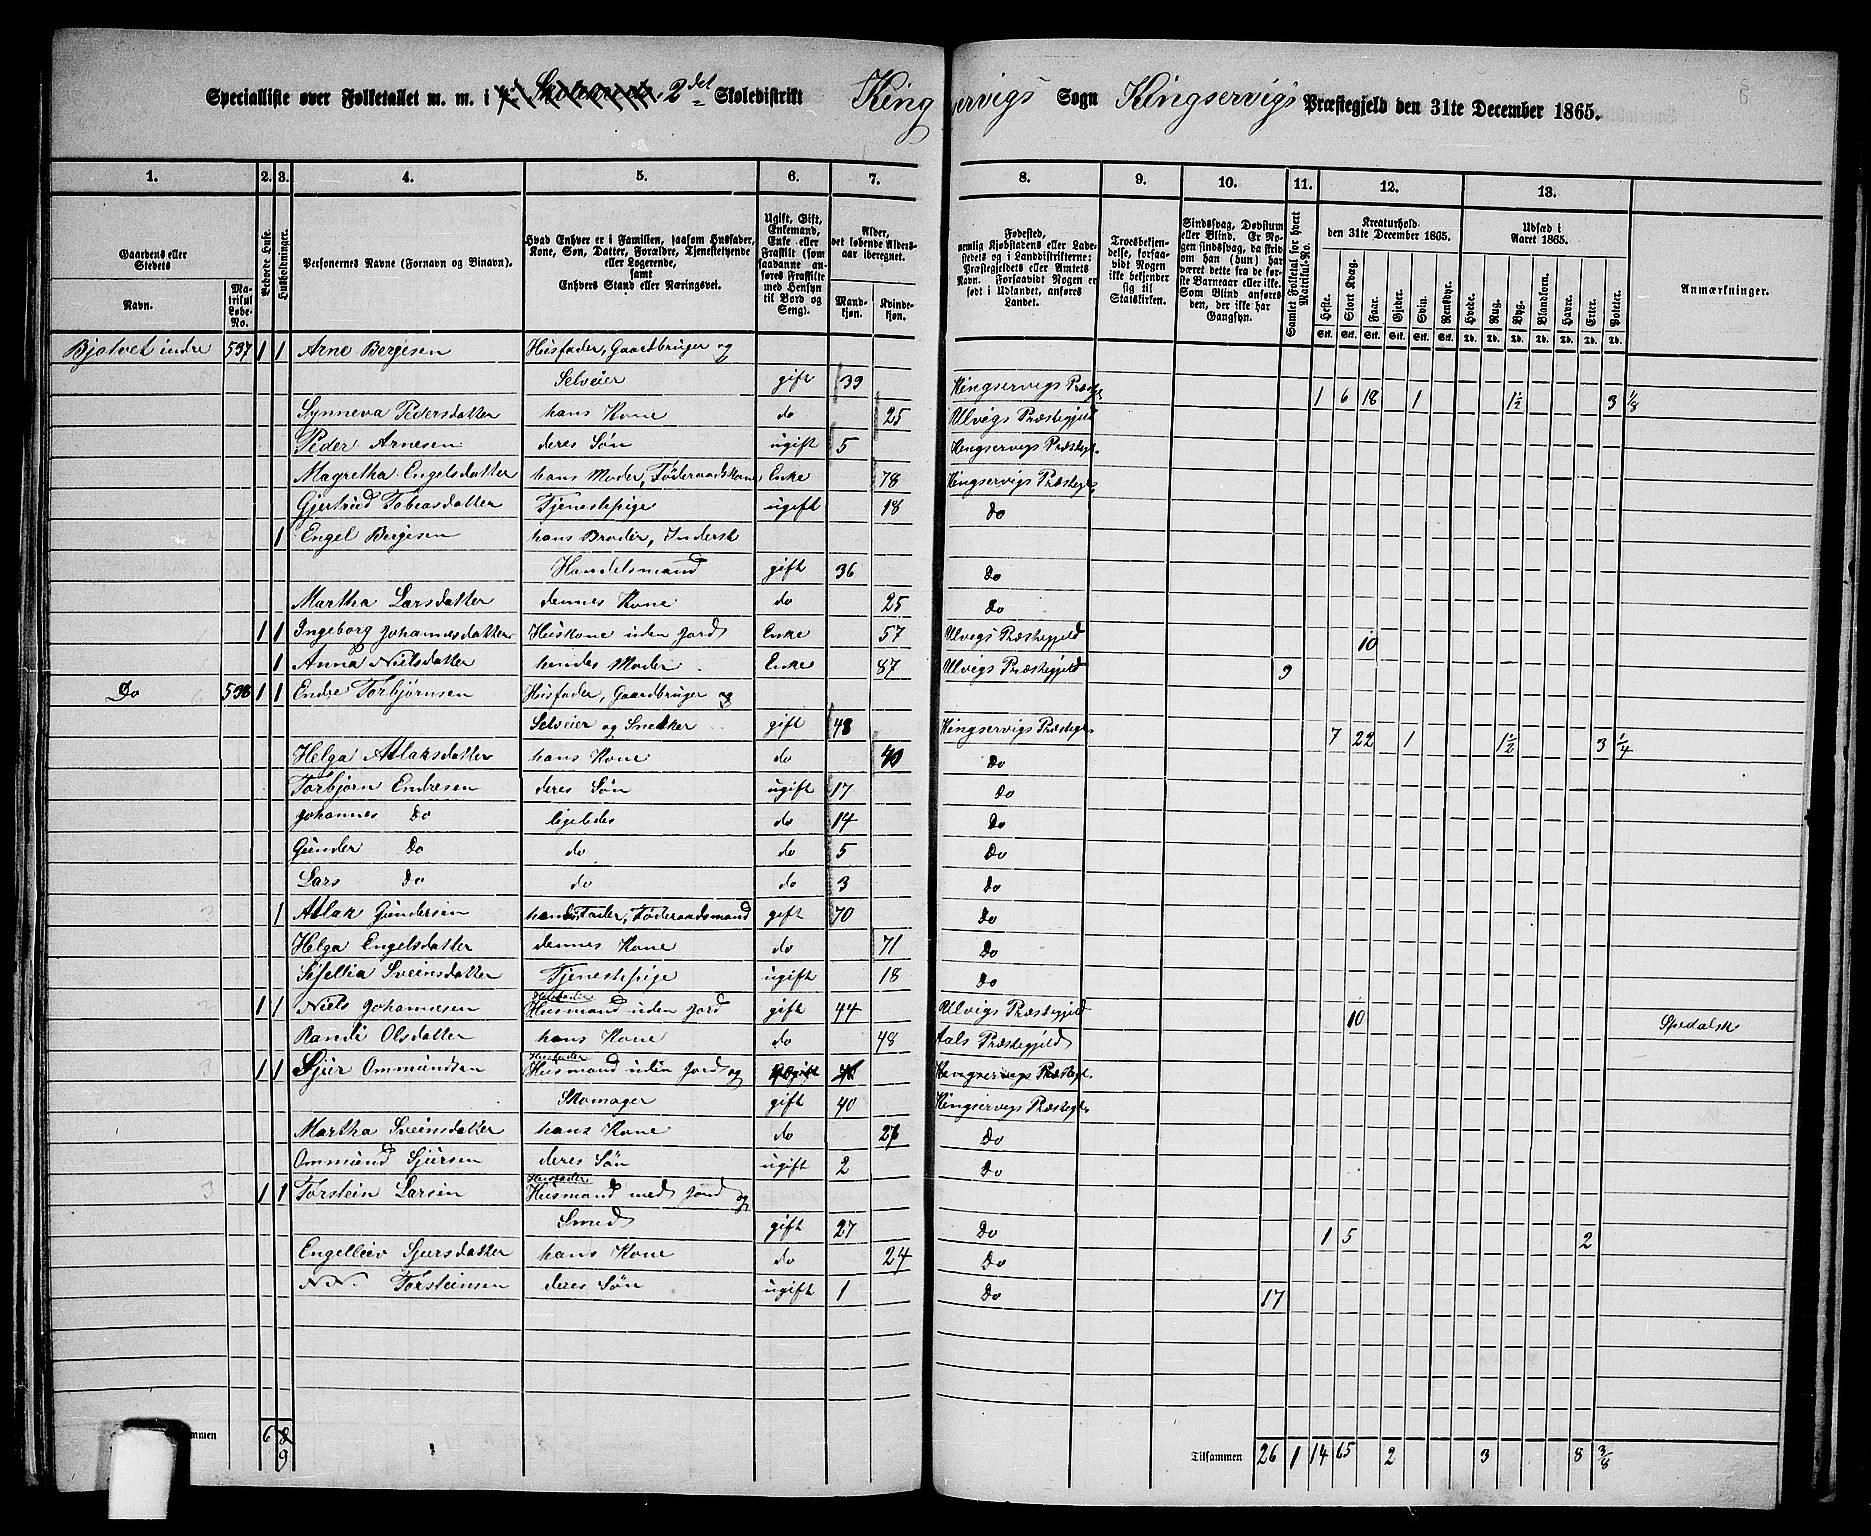 Specialliste over Folketallet m. m. i 2det Skoledistrikt Kingservigs Sogn Kingservigs Præstegjeld den 31te December 1865.
1. 2. 3. 4. 5. 6. 7. 8. 9. 10. 11. 12. 13.
Gaardens eller Stedets Navn. Matrikul Løbe-No. Beboede Huse. Husholdninger. Personernes Navne (Fornavn og Binavn). Hvad Enhver er i Familien, saasom Husfader, Kone, Søn, Datter, Forældre, Tjenestetyende eller Logerende, samt Enhvers Stand eller Næringsvei. Ugift, Gift, Enkemand, Enke eller Fraskilt (som saadanne anføres Fraskilte med Hensyn til Bord og Seng). Alder, det løbende Aldersaar iberegnet. Mandkjøn. Kvindekjøn. Fødested, nemlig Kjøbstadens eller Ladestedets og i Landdistrikterne: Præstegjeldets eller Amtets Navn. Forsaavidt Nogen er født i Udlandet, anføres Landet. Troesbekjendelse, forsaavidt Nogen ikke bekjender sig til Statskirken. Sindssvag, Døvstum eller Blind. Er Nogen sindssvag, da skrives om han (hun) har været dette fra de første Barneaar eller ikke. Som Blind anføres den, der ikke har Gangsyn. Samlet Folketal for hvert Matrikul-No. Kreaturhold den 31te December 1865. Heste. Stort Kvæg. Faar. Gjeder. Sviin. Rensdyr. Udsæd i Aaret 1865. Hvede. Rug. Byg. Blandkorn. Havre. Erter. Poteter. Anmærkninger.
Stk. Stk. Stk. Stk. Stk. Stk. Td. Td. Td. Td. Td. Td. Td.
Bjotvet indre 537 1 1 Arne Bergesen Husfader, Gaardbruger og
Selveier gift 39 Kingservigs Præstgj. 1 6 18 1 1½ 3 1/8
Synneva Pedersdatter hans Kone do 25 Ulvigs Præstegjeld
Peder Arnesen deres Søn ugift 5 Kingservigs Præstegl.
Magretha Engelsdatter hans Moder, Føderaadskone Enke 78 Kingservigs Præstegl.
Gjertrud Tobiasdatter Tjenestepige ugift 18 Do
1 Engel Bergesen hans Broder, Indersk
Handelsmand gift 36 Do
Martha Larsdatter dennes Kone do 25 Do
1 1 Ingeborg Johannesdatter Huskone uden Jord Enke 57 Ulvigs Præstegjeld 10
1 Anna Nielsdatter hendes Moder Enke 87 Ulvigs Præstegjeld 9
Do 538 1 1 Endre Torbjørnsen Husfader, Gaardbruger og
Selveier og Snekker gift 48 Kingservigs Præstegl. 7 22 1 1½ 3 1/4
Helga Atlaksdatter hans Kone do 40 Do
Torbjørn Endresen deres Søn ugift 17 Do
Johannes Do ligeledes do 14 Do
Gunder Do do do 5 Do
Lars Do do do 3 Do
1 Atlak Gundersen hendes Fader, Føderaadsmand gift 70 Do
Helga Engelsdatter dennes Kone do 71 Do
Sisellia Sveinsdatter Tjenestepige ugift 18 Do
1 1 Niels Johannesen Husfader Husmand uden Jord gift 44 Ulvigs Præstegjeld 10
Randi Olsdatter hans Kone do 48 Aals Præstegjeld Spedalsk
1 1 Sjur Ommundsen Husfader Husmand uden Jord og Kingservigs Præstegl.
Skomager gift 40 Kingservigs Præstegl.
Martha Sveinsdatter hans Kone do 26 Do
Ommund Sjursen deres Søn ugift 2 Do
1 1 Torstein Larsen Husfader Husmand med Jord og
Smed gift 27 Do 1 5 2
Engelliev Sjursdatter hans Kone do 24 Do
N. N. Torsteinsen deres Søn ugift 1 Do 17
6 8 Tilsammen 26 1 14 65 2 3 8 3/8
9